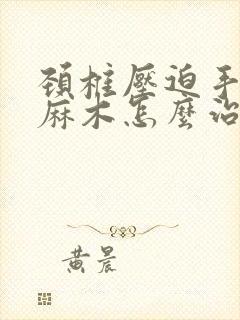 頸椎壓迫手
麻木怎麼治
黃晨